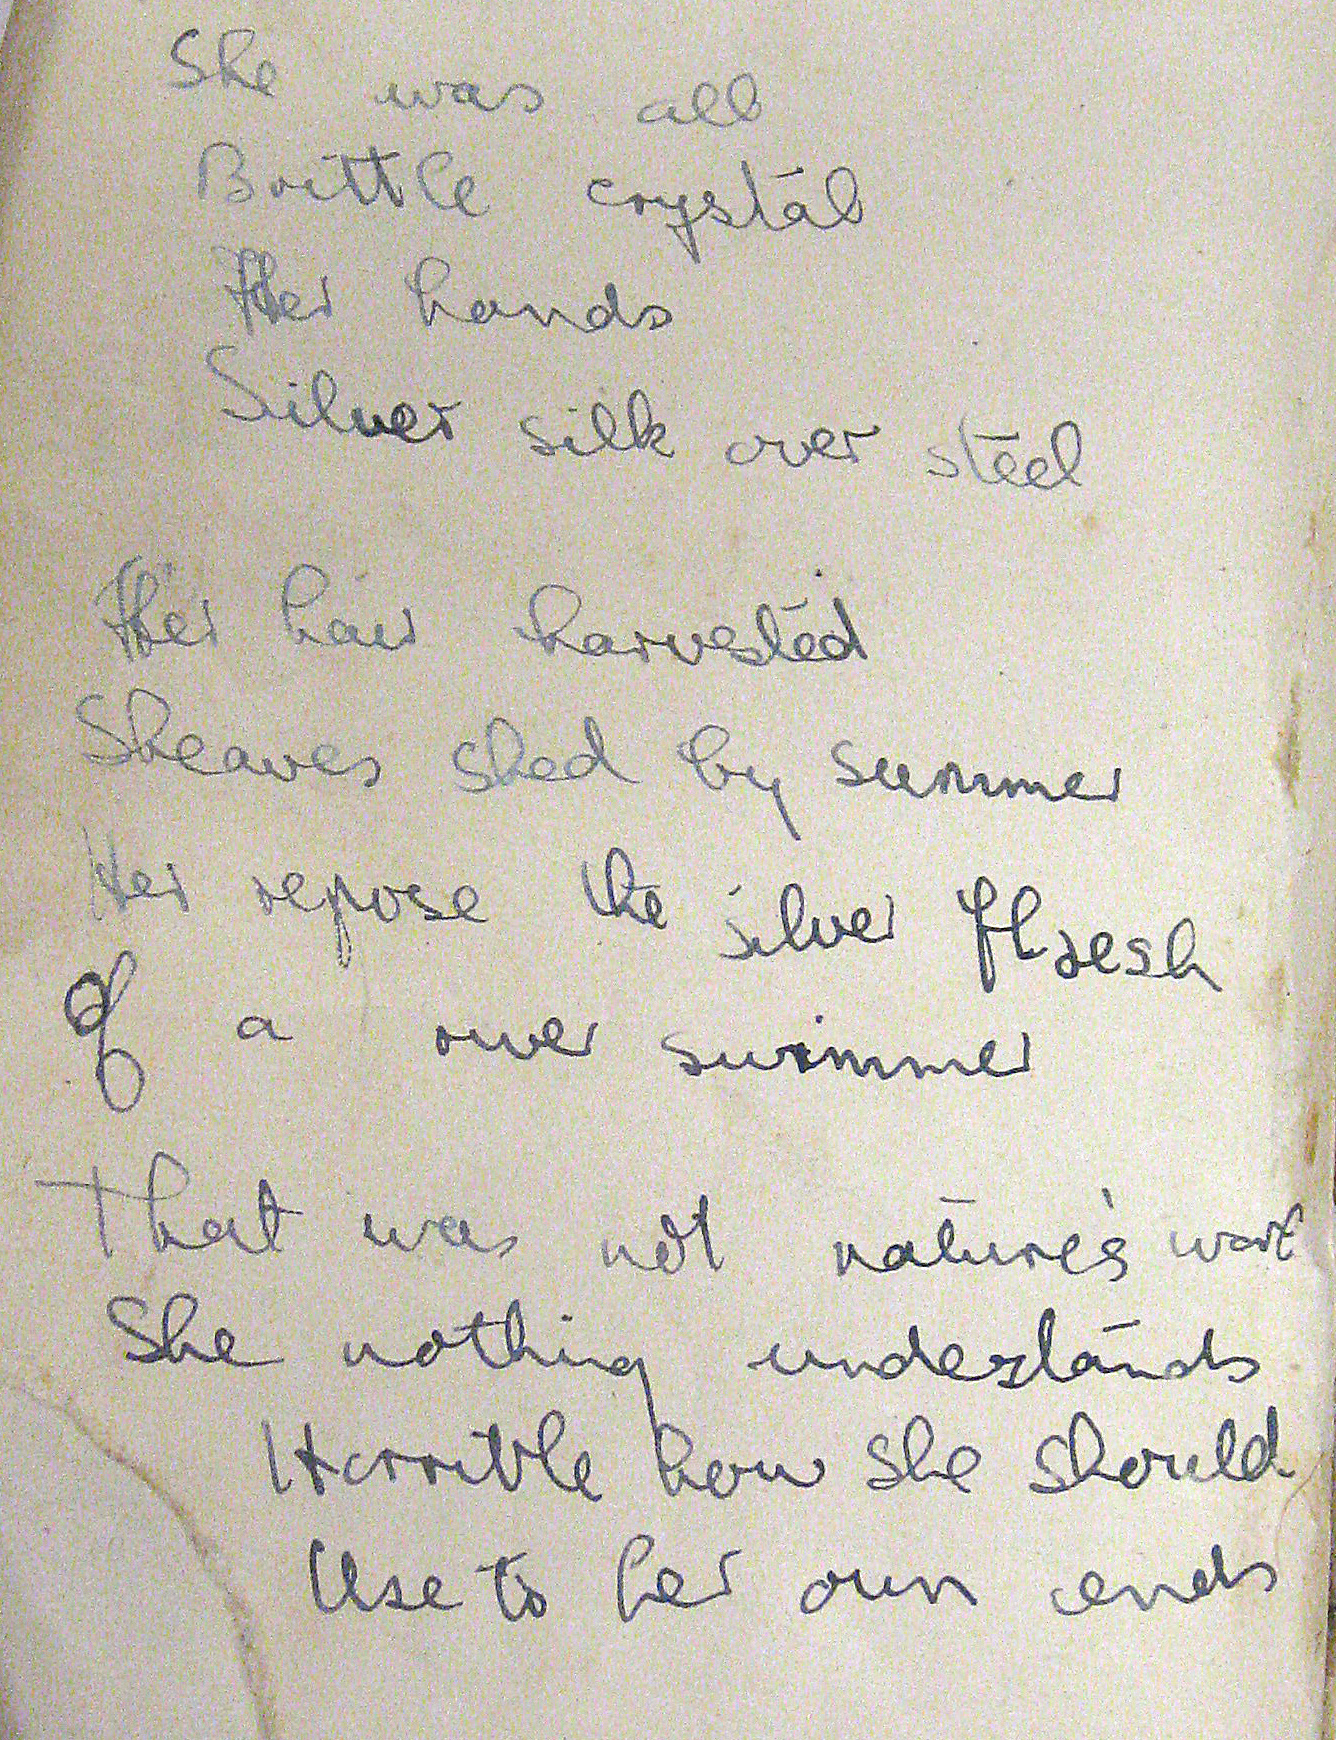 She was all
Brittle crystal
Her hands
Silver silk over steel
Her hair harvested
Sheaves shed by summer
Her repose the silver flash
Of a river swimmer
That was not nature's
She nothing understands
Horrible how she should
Use to her own ends